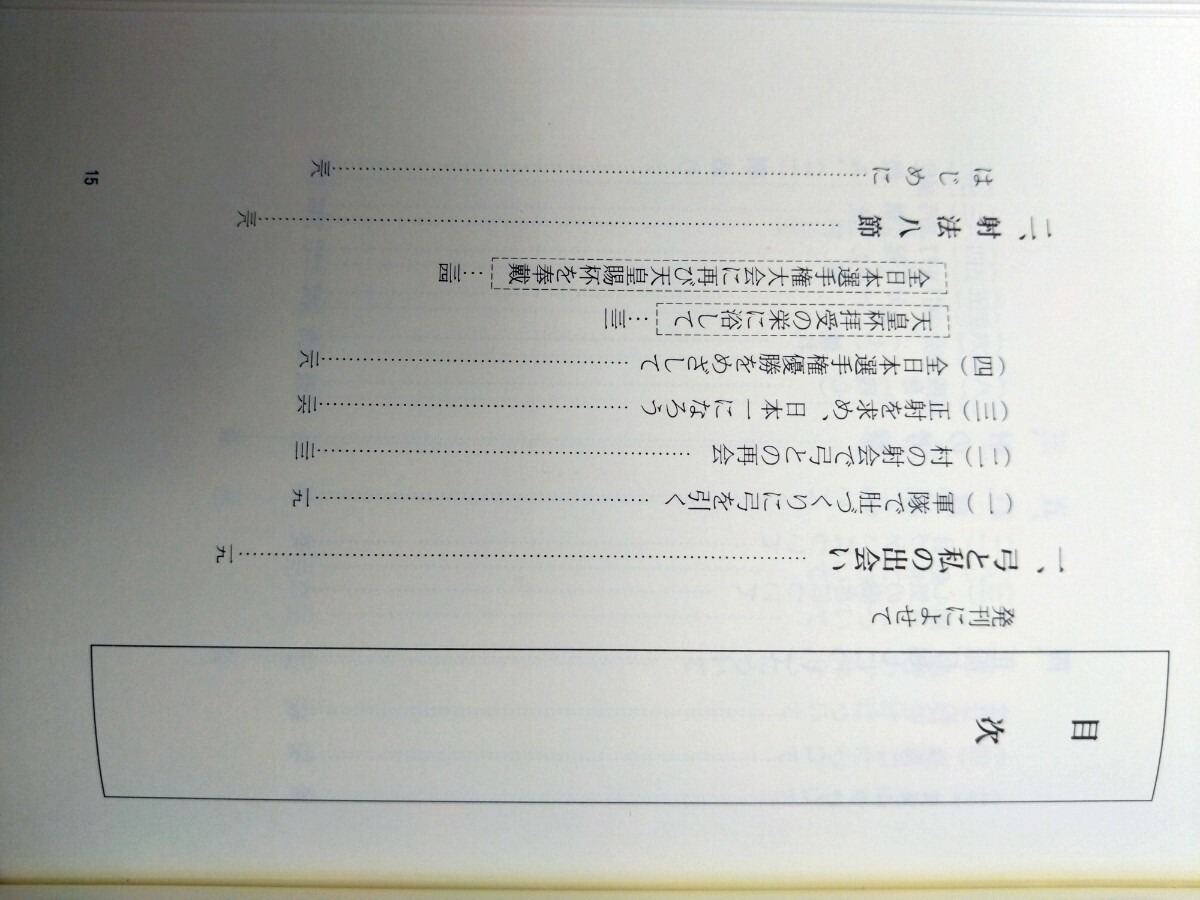 目次
発刊によせて
一、弓と私の出会い……一九
(一)軍隊で肚づくりに弓を引く……一九
(二)村の射会で弓との再会……
(三)正射を求め、日本一になろう……二六
(四)全日本選手権優勝をめざして……
天皇杯拝受の栄に浴して……
全日本選手権大会に再び天皇賜杯を奉戴……三四
二、射法八節……
はじめに……
15